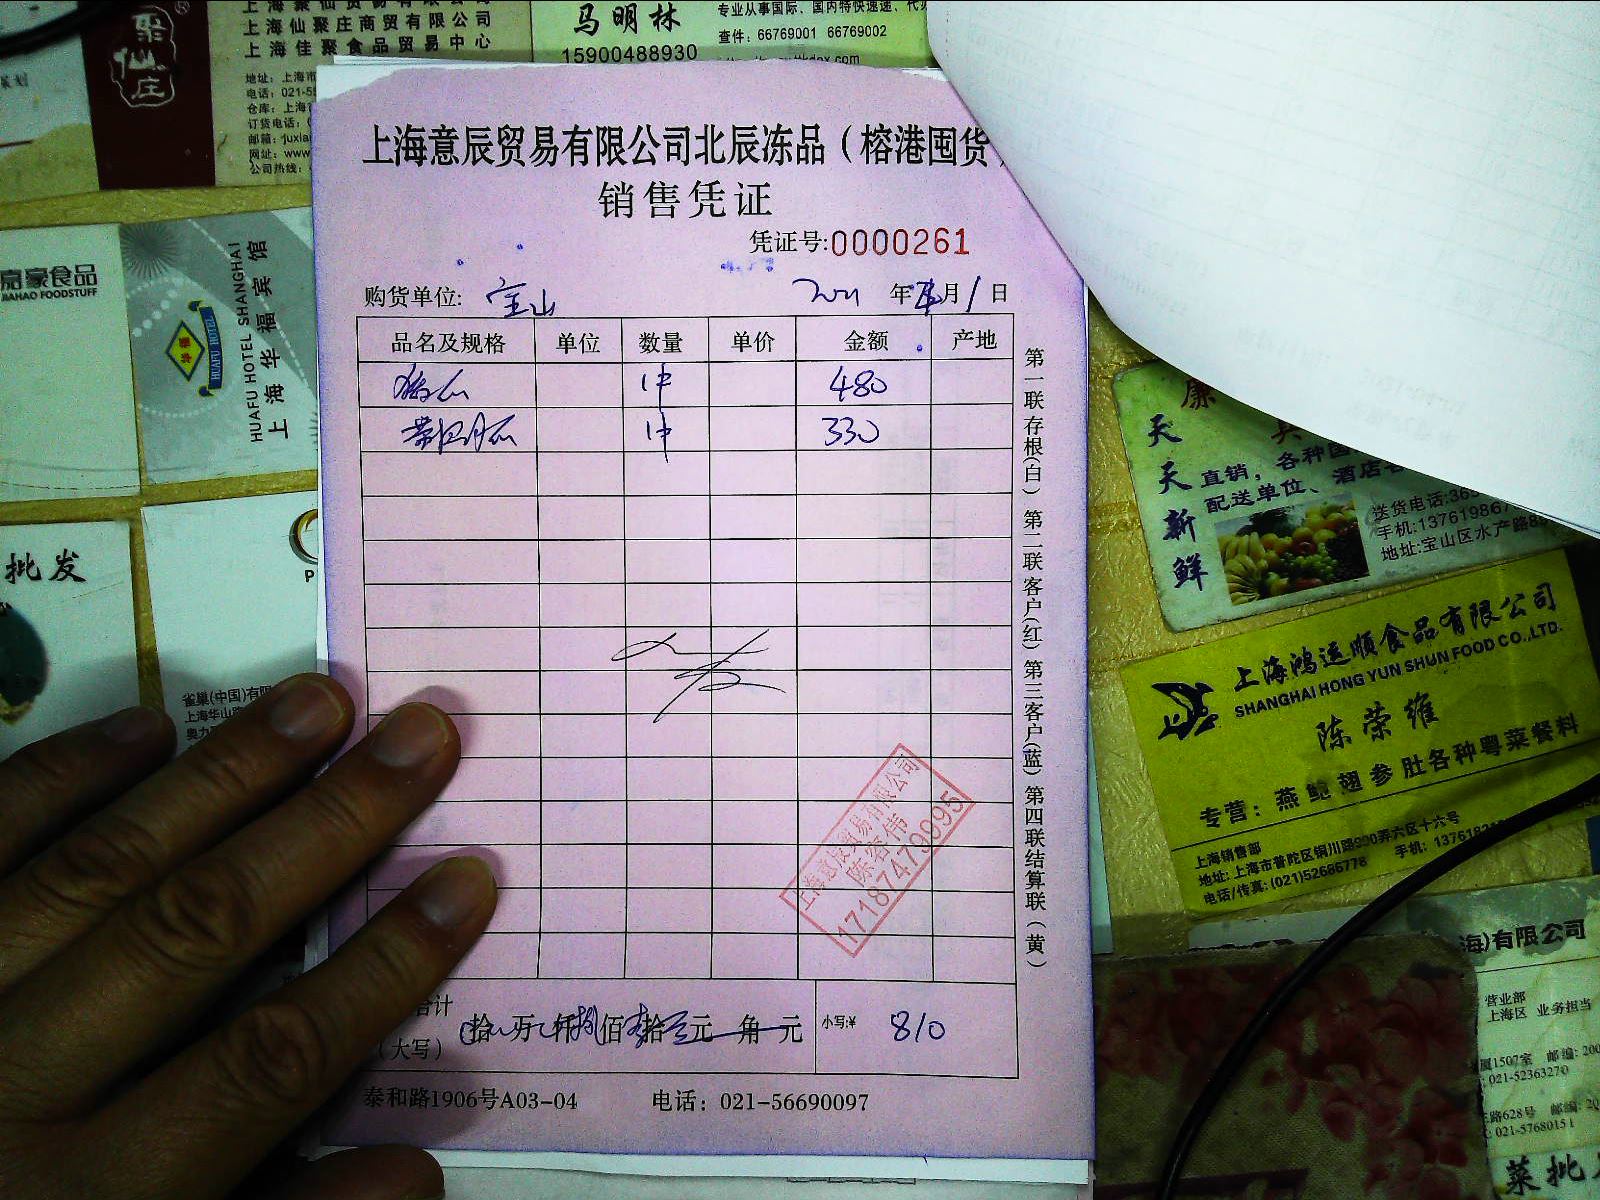 上海仙聚庄商贸有限公司
上海佳聚食品贸易中心
聚仙庄
地址：上海市
电话：021-5
仓库：上海
订货电话：
邮箱：juxia
网址：www
公司热线：
马明林
15900488930
专业从事国际、国内特快速递、代
查件：66769001 66769002
上海意辰贸易有限公司北辰冻品（榕港囤货）
销售凭证
凭证号:0000261
购货单位: 宝山
年 月 1 日
品名及规格 单位 数量 单价 金额 产地
1件 480
1件 330
第一联存根(白) 第二联客户(红) 第三客户(蓝) 第四联结算联(黄)
上海意辰贸易有限公司
陈容伟
17187479995
合计
(大写)
拾 万 仟 捌 佰 壹 拾 元 角 元
小写:¥ 810
泰和路1906号A03-04 电话：021-56690097
嘉豪食品
JIAHAO FOODSTUFF
HUAFU HOTEL SHANGHAI
上海华福宾馆
华福
HUAFU HOTEL
批发
雀巢(中国)有限
上海华山路
奥力
天天新鲜
康
直销，各种
配送单位、酒店
送货电话:363
手机:13761986
地址:宝山区水产路
上海鸿运顺食品有限公司
SHANGHAI HONG YUN SHUN FOOD CO.,LTD.
陈荣维
专营：燕鲍翅参肚各种粤菜餐料
上海销售部
地址：上海市普陀区铜川路990弄六区十六号
电话/传真：(021)52686778 手机：137618
海)有限公司
营业部
上海区 业务担当
厦1507室 邮编：200
：021-52363270
路628号 邮编：20
：021-57680151
菜批